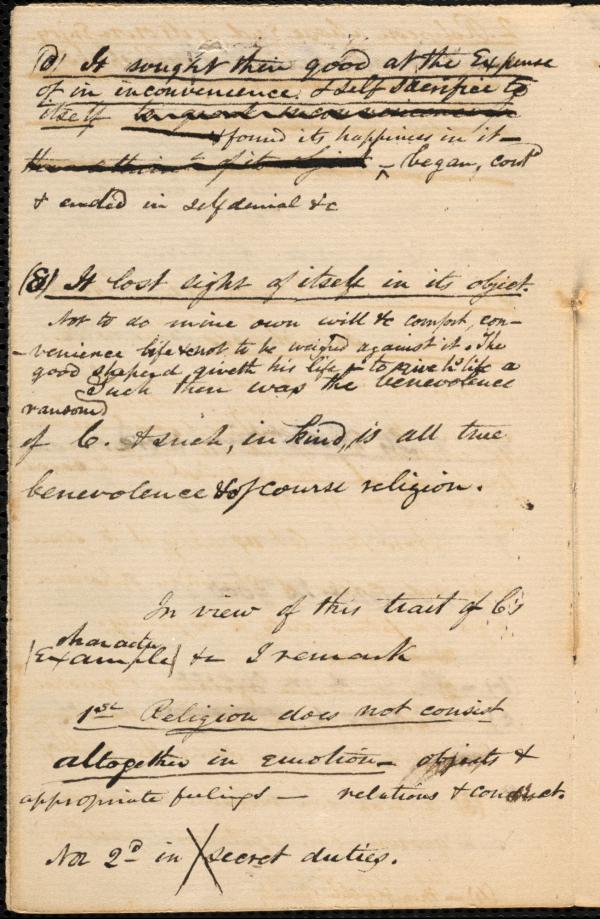 (d) It sought their good at the Expense
of in inconvenience & self sacrifice to
itself
& found its happiness in it —
began, cont
& ended in self denial &c
(8) It lost sight of itself in its object.
Not to do mine own will &c comfort, con-
-venience life &c not to be weighed against it. The
good sheperd giveth his life & to give his life a
ransom
Such then was the benevolence
of C. & such, in kind, is all true
benevolence & of course religion.
In view of this trait of C's
character
(Example) &c I remark
1st Religion does not consist
altogether in emotion — objects &
appropriate feelings — relations & conduct.
Nor 2d in secret duties.